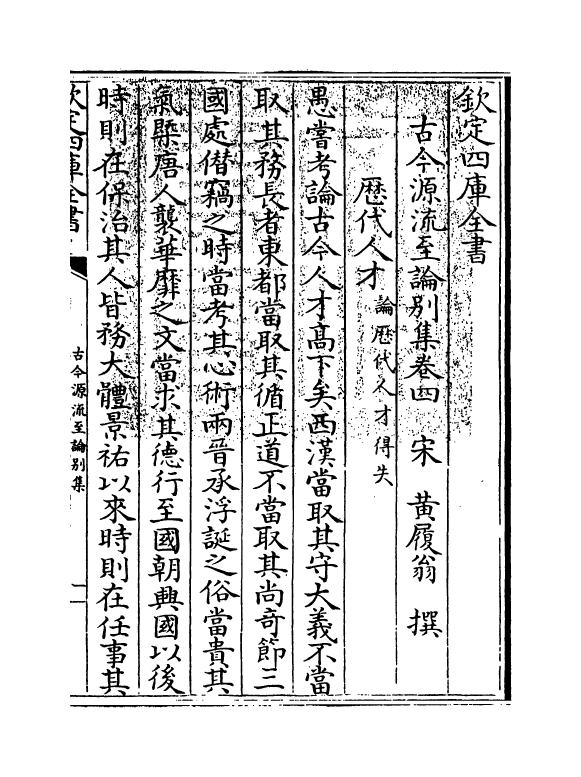 欽定四庫全書
古今源流至論別集卷四　宋　黃履翁　撰
歷代人才論歷代人才得失
愚嘗考論古今人才髙下矣西漢當取其守大義不當
取其務長者東都當取其循正道不當取其尚竒節三
國處僣竊之時當考其心術兩晉承浮誕之俗當貴其
氣槩唐人襲華靡之文當求其德行至國朝興國以後
時則在保治其人皆務大體景祐以來時則在任事其
欽定四庫全書
古今源流至論別集
一